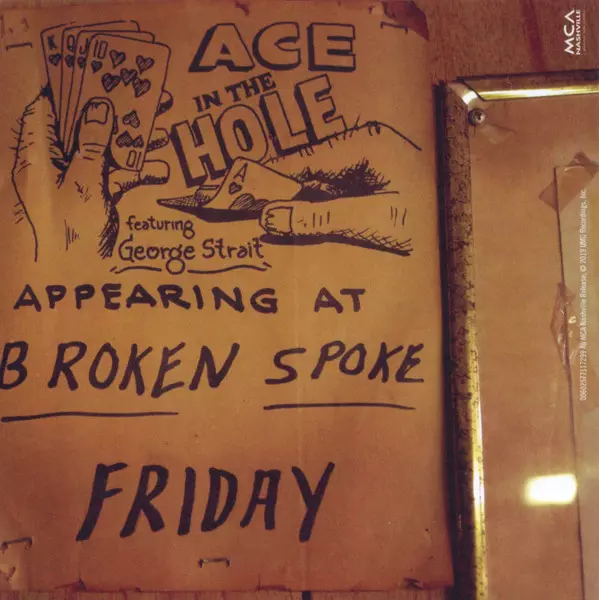 ACE
IN THE
HOLE
featuring
George Strait
APPEARING AT
BROKEN SPOKE
FRIDAY
K Q J 10
A
MCA
NASHVILLE
An MCA Nashville Release, © 2019 UMG Recordings, Inc.